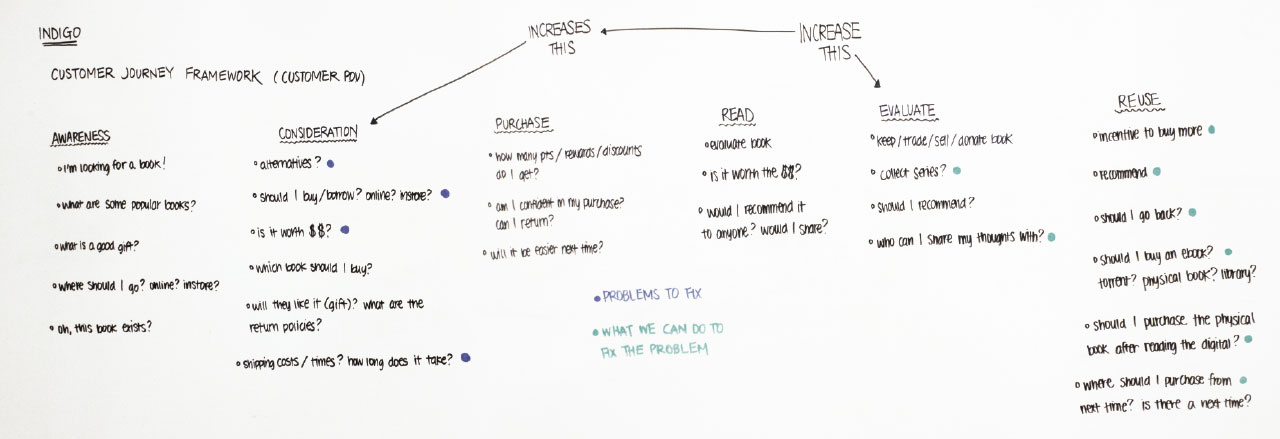 INDIGO
CUSTOMER JOURNEY FRAMEWORK (CUSTOMER POV)
INCREASES
THIS
INCREASE
THIS
AWARENESS
• I'm looking for a book!
• what are some popular books?
• what is a good gift?
• where should I go? online? instore?
• oh, this book exists?
CONSIDERATION
• alternatives?
• should I buy/borrow? online? instore?
• is it worth $$?
• which book should I buy?
• will they like it (gift)? what are the
return policies?
• shipping costs / times? how long does it take?
PURCHASE
• how many pts / rewards / discounts
do I get?
• am I confident in my purchase?
can I return?
• will it be easier next time?
READ
• evaluate book
• is it worth the $$?
• would I recommend it
to anyone? would I share?
EVALUATE
• keep / trade / sell / donate book
• collect series?
• should I recommend?
• who can I share my thoughts with?
REUSE
• incentive to buy more
• recommend
• should I go back?
• should I buy an ebook?
torrent? physical book? library?
• should I purchase the physical
book after reading the digital?
• where should I purchase from
next time? is there a next time?
• PROBLEMS TO FIX
• WHAT WE CAN DO TO
FIX THE PROBLEM